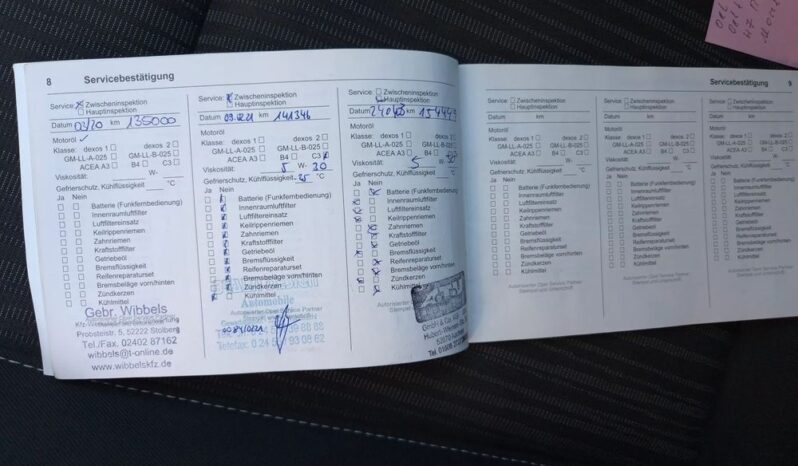 8 Servicebestätigung
Service: Zwischeninspektion
Hauptinspektion
Datum 03/20 km 135000
Motoröl
Klasse: dexos 1 dexos 2
GM-LL-A-025 GM-LL-B-025
ACEA A3 B4 C3
Viskosität: W-
Gefrierschutz, Kühlflüssigkeit °C
Ja Nein
Batterie (Funkfernbedienung)
Innenraumluftfilter
Luftfiltereinsatz
Keilrippenriemen
Zahnriemen
Kraftstofffilter
Getriebeöl
Bremsflüssigkeit
Reifenreparaturset
Bremsbeläge vorn/hinten
Zündkerzen
Kühlmittel
Gebr. Wibbels
Probsteistr. 5, 52222 Stolberg
Tel./Fax. 02402 87162
wibbels@t-online.de
www.wibbelskfz.de
Service: Zwischeninspektion
Hauptinspektion
Datum 09.02.21 km 141346
Motoröl
Klasse: dexos 1 dexos 2
GM-LL-A-025 GM-LL-B-025
ACEA A3 B4 C3
Viskosität: 5 W- 30
Gefrierschutz, Kühlflüssigkeit -35 °C
Ja Nein
Batterie (Funkfernbedienung)
Innenraumluftfilter
Luftfiltereinsatz
Keilrippenriemen
Zahnriemen
Kraftstofffilter
Getriebeöl
Bremsflüssigkeit
Reifenreparaturset
Bremsbeläge vorn/hinten
Zündkerzen
Kühlmittel
Automobile
Autorisierter Opel Service Partner
Stempel und Unterschrift
Service: Zwischeninspektion
Hauptinspektion
Datum km 154449
Motoröl
Klasse: dexos 1 dexos 2
GM-LL-A-025 GM-LL-B-025
ACEA A3 B4 C3
Viskosität: 5 W- 30
Gefrierschutz, Kühlflüssigkeit °C
Ja Nein
Batterie (Funkfernbedienung)
Innenraumluftfilter
Luftfiltereinsatz
Keilrippenriemen
Zahnriemen
Kraftstofffilter
Getriebeöl
Bremsflüssigkeit
Reifenreparaturset
Bremsbeläge vorn/hinten
Zündkerzen
Kühlmittel
Autorisierter
Stempel
GmbH & Co. KG
Servicebestätigung 9
Service: Zwischeninspektion
Hauptinspektion
Datum km
Motoröl
Klasse: dexos 1 dexos 2
GM-LL-A-025 GM-LL-B-025
ACEA A3 B4 C3
Viskosität: W-
Gefrierschutz, Kühlflüssigkeit °C
Ja Nein
Batterie (Funkfernbedienung)
Innenraumluftfilter
Luftfiltereinsatz
Keilrippenriemen
Zahnriemen
Kraftstofffilter
Getriebeöl
Bremsflüssigkeit
Reifenreparaturset
Bremsbeläge vorn/hinten
Zündkerzen
Kühlmittel
Autorisierter Opel Service Partner
Stempel und Unterschrift
Service: Zwischeninspektion
Hauptinspektion
Datum km
Motoröl
Klasse: dexos 1 dexos 2
GM-LL-A-025 GM-LL-B-025
ACEA A3 B4 C3
Viskosität: W-
Gefrierschutz, Kühlflüssigkeit °C
Ja Nein
Batterie (Funkfernbedienung)
Innenraumluftfilter
Luftfiltereinsatz
Keilrippenriemen
Zahnriemen
Kraftstofffilter
Getriebeöl
Bremsflüssigkeit
Reifenreparaturset
Bremsbeläge vorn/hinten
Zündkerzen
Kühlmittel
Autorisierter Opel Service Partner
Stempel und Unterschrift
Service: Zwischeninspektion
Hauptinspektion
Datum km
Motoröl
Klasse: dexos 1 dexos 2
GM-LL-A-025 GM-LL-B-025
ACEA A3 B4 C3
Viskosität: W-
Gefrierschutz, Kühlflüssigkeit °C
Ja Nein
Batterie (Funkfernbedienung)
Innenraumluftfilter
Luftfiltereinsatz
Keilrippenriemen
Zahnriemen
Kraftstofffilter
Getriebeöl
Bremsflüssigkeit
Reifenreparaturset
Bremsbeläge vorn/hinten
Zündkerzen
Kühlmittel
Autorisierter Opel Service Partner
Stempel und Unterschrift